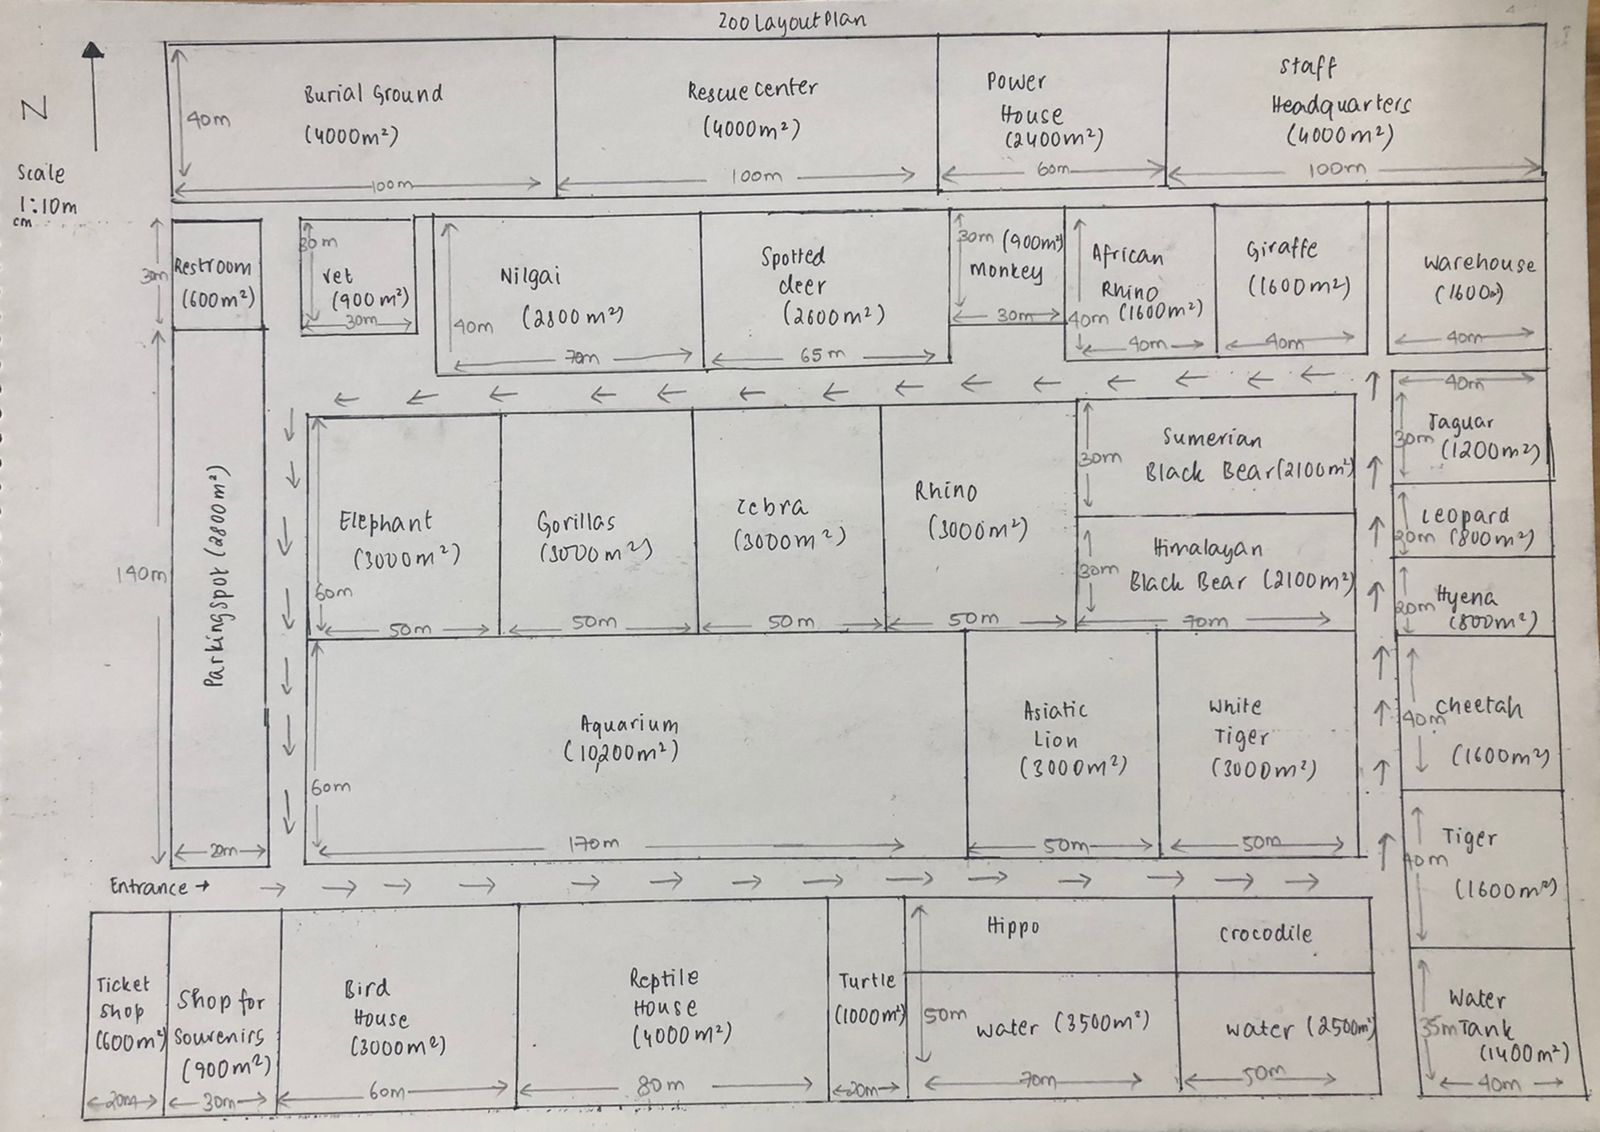 Zoo Layout Plan
N
Scale
1:10m
cm
Burial Ground
(4000m²)
40m
100m
Rescue center
(4000m²)
100m
Power
House
(2400m²)
60m
Staff
Headquarters
(4000m²)
100m
30m
Restroom
(600m²)
30m
Vet
(900m²)
30m
Nilgai
(2800m²)
40m
70m
Spotted
deer
(2600m²)
65m
30m (900m²)
monkey
30m
African
Rhino
(1600m²)
40m
40m
Giraffe
(1600m²)
40m
Warehouse
(1600m²)
40m
140m
Parkingspot (2800m²)
20m
Elephant
(3000m²)
60m
50m
Gorillas
(3000m²)
50m
Zebra
(3000m²)
50m
Rhino
(3000m²)
50m
Sumerian
Black Bear (2100m²)
30m
Himalayan
Black Bear (2100m²)
30m
70m
40m
Jaguar
30m (1200m²)
Leopard
20m (800m²)
20m Hyena
(800m²)
Cheetah
40m
(1600m²)
Tiger
40m
(1600m²)
Water
35m Tank
(1400m²)
40m
Aquarium
(10,200m²)
60m
170m
Asiatic
Lion
(3000m²)
50m
White
Tiger
(3000m²)
50m
Entrance →
Ticket
Shop
(600m²)
20m
Shop for
Souvenirs
(900m²)
30m
Bird
House
(3000m²)
60m
Reptile
House
(4000m²)
80m
Turtle
(1000m²)
20m
Hippo
50m
water (3500m²)
70m
crocodile
water (2500m²)
50m